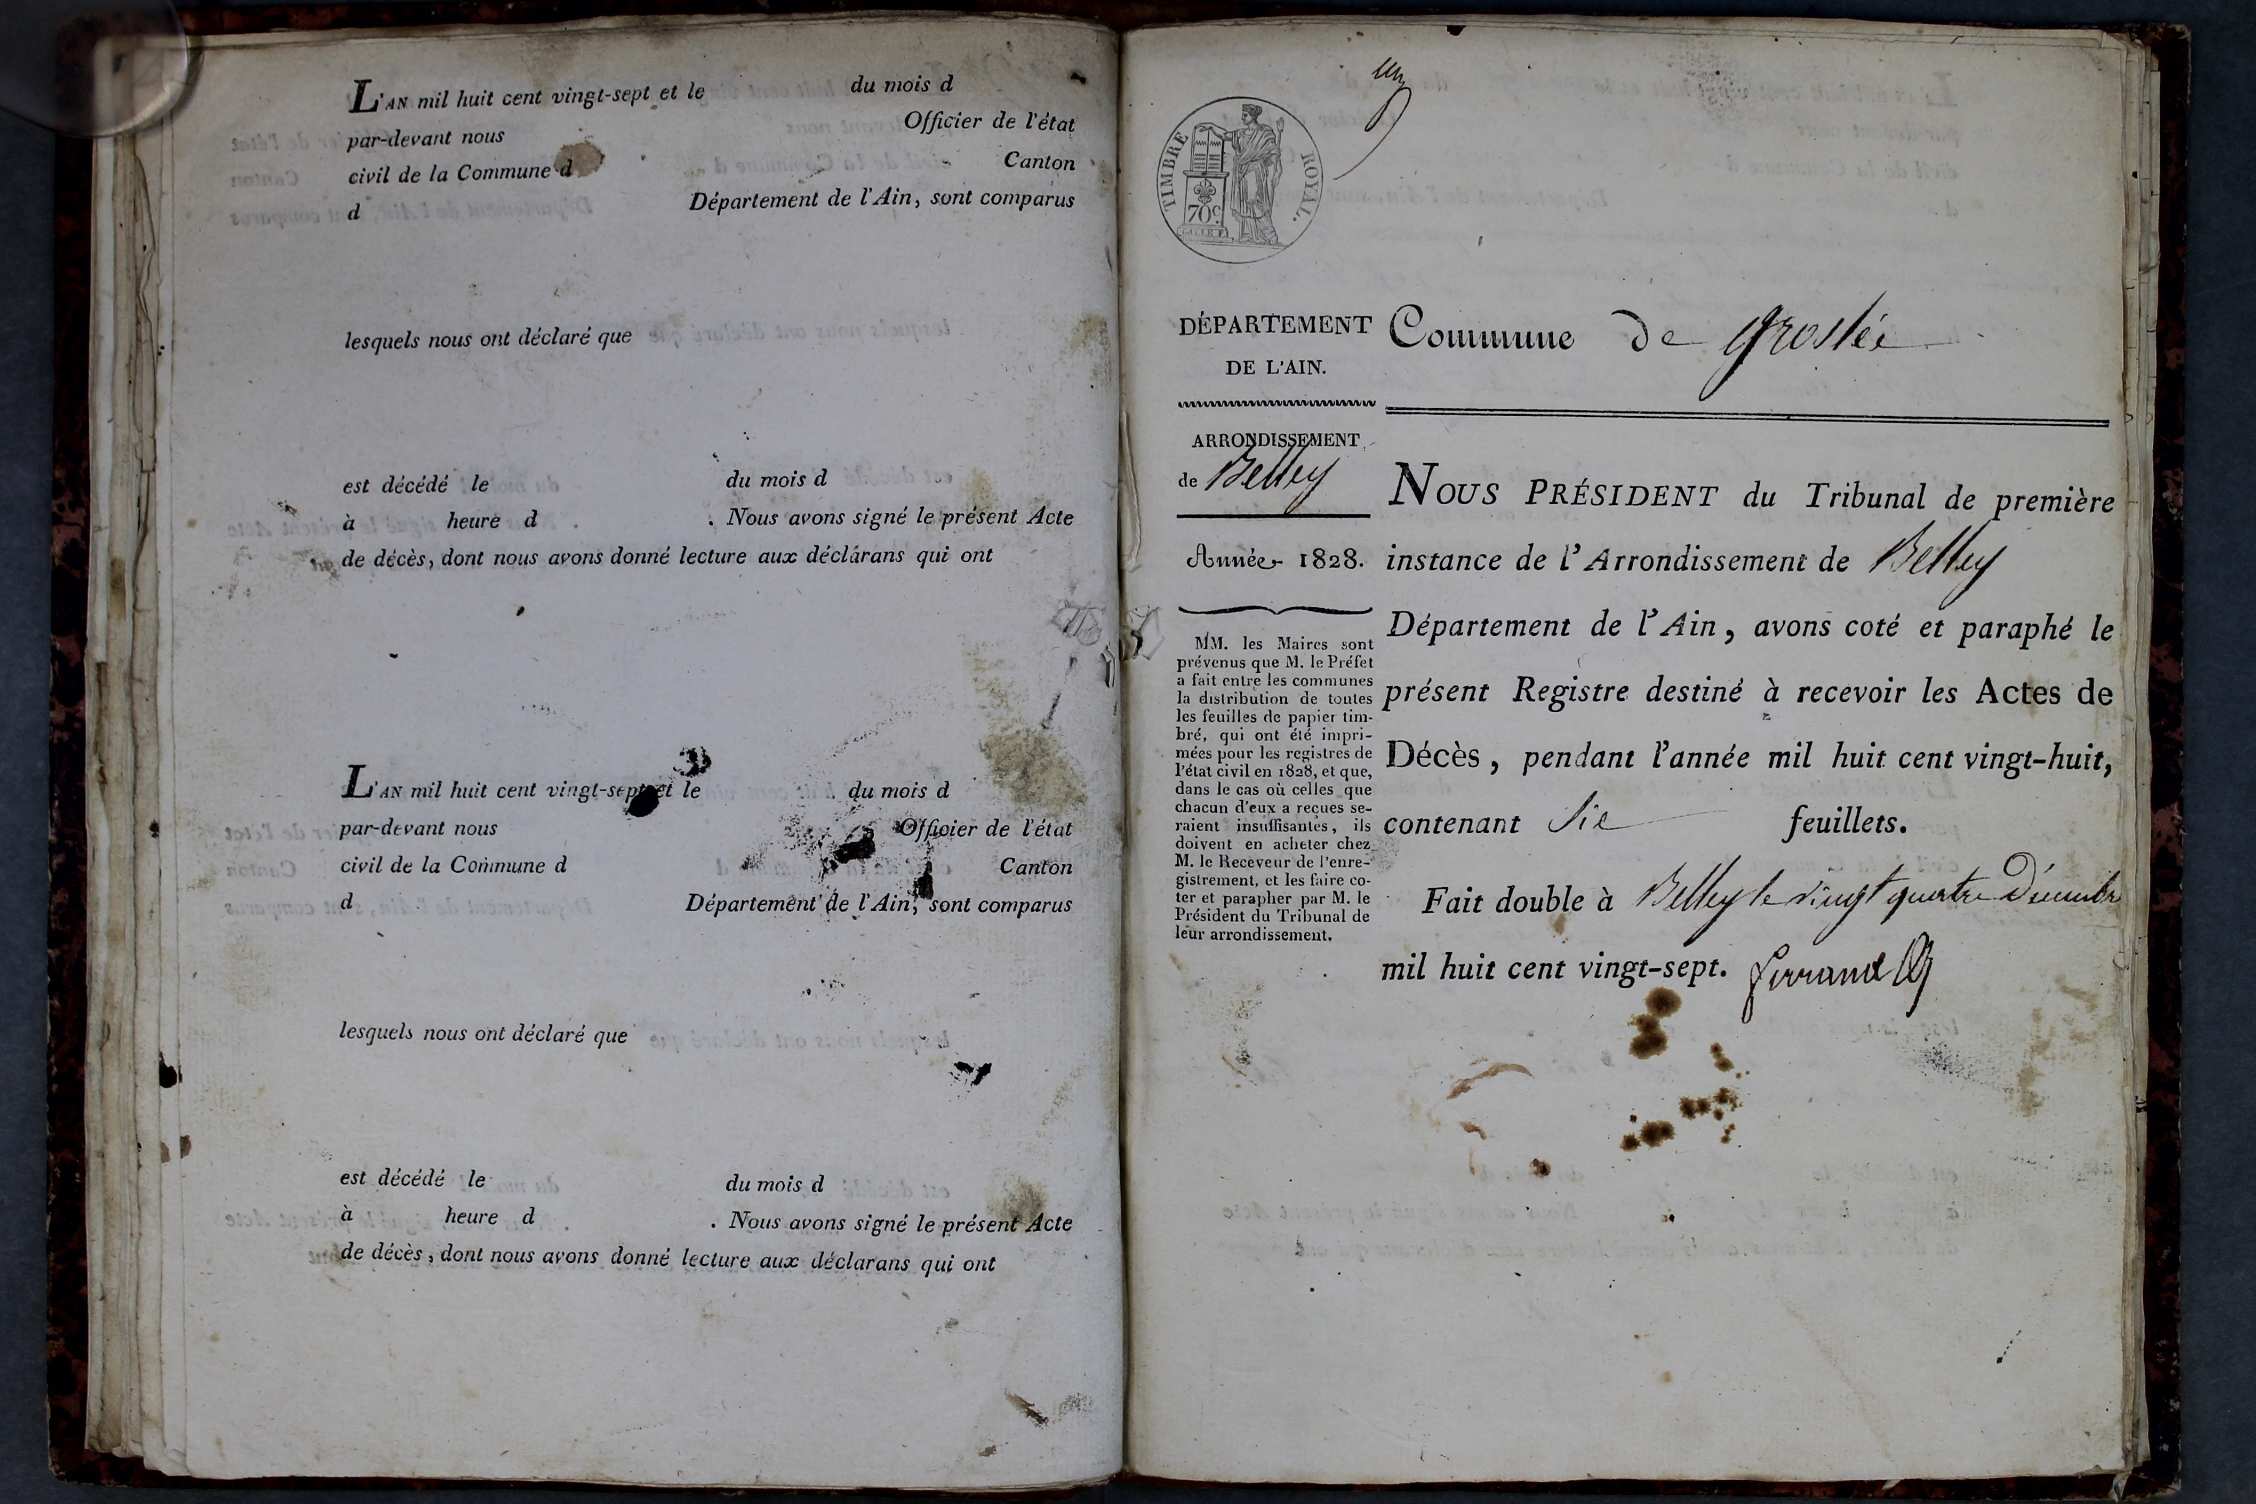 L'AN mil huit cent vingt-sept et le du mois d
par-devant nous Officier de l'état
civil de la Commune d Canton
d Département de l'Ain, sont comparus
lesquels nous ont déclaré que
est décédé le du mois d
à heure d . Nous avons signé le présent Acte
de décès, dont nous avons donné lecture aux déclarans qui ont
L'AN mil huit cent vingt-sept et le du mois d
par-devant nous Officier de l'état
civil de la Commune d Canton
d Département de l'Ain, sont comparus
lesquels nous ont déclaré que
est décédé le du mois d
à heure d . Nous avons signé le présent Acte
de décès, dont nous avons donné lecture aux déclarans qui ont
un
TIMBRE ROYAL.
70c
DÉPARTEMENT
DE L'AIN.
ARRONDISSEMENT
de Belley
Année 1828.
MM. les Maires sont
prévenus que M. le Préfet
a fait entre les communes
la distribution de toutes
les feuilles de papier tim-
bré, qui ont été impri-
mées pour les registres de
l'état civil en 1828, et que,
dans le cas où celles que
chacun d'eux a reçues se-
raient insuffisantes, ils
doivent en acheter chez
M. le Receveur de l'enre-
gistrement, et les faire co-
ter et parapher par M. le
Président du Tribunal de
leur arrondissement.
Commune de Groslée
NOUS PRÉSIDENT du Tribunal de première
instance de l'Arrondissement de Belley
Département de l'Ain, avons coté et paraphé le
présent Registre destiné à recevoir les Actes de
Décès, pendant l'année mil huit cent vingt-huit,
contenant Six feuillets.
Fait double à Belley le vingt quatre Décembre
mil huit cent vingt-sept. Ferrand